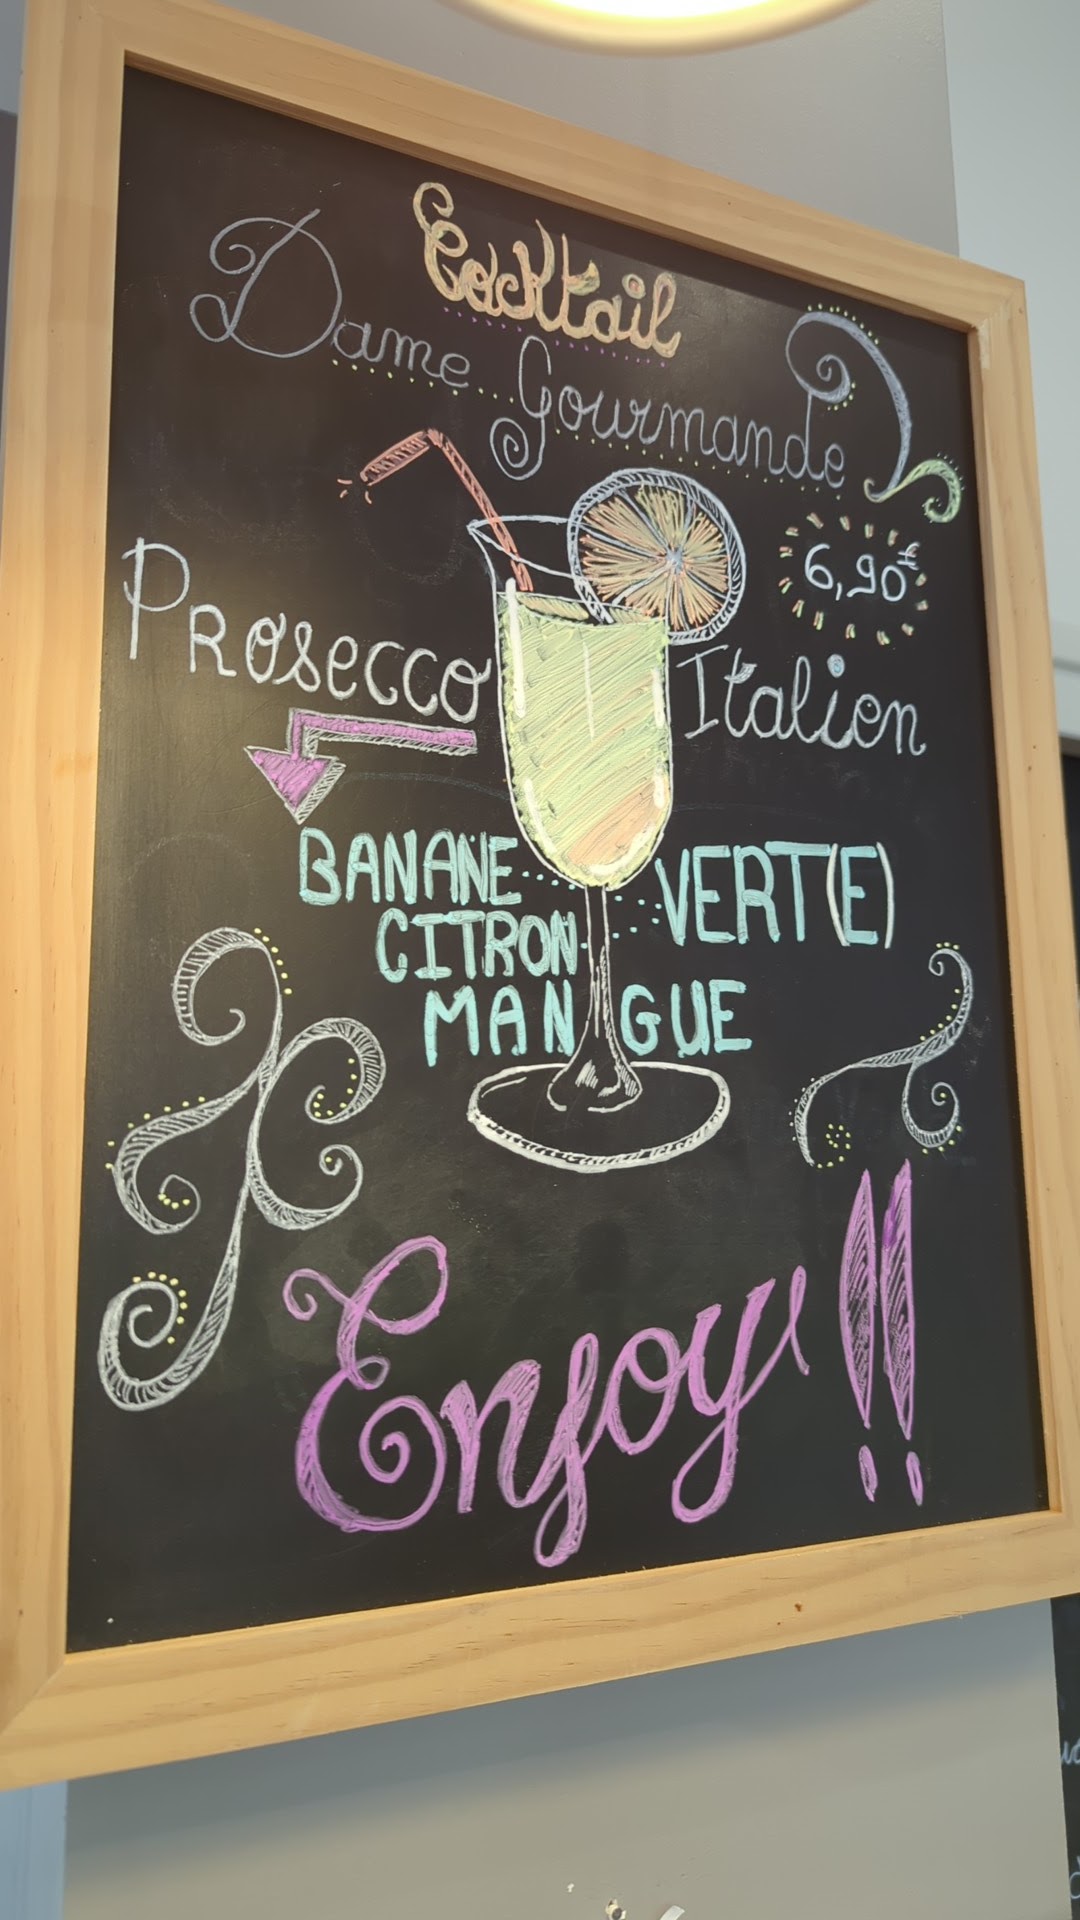 Cocktail
Dame Gourmande
6,90€
Prosecco Italien
BANANE VERT(E)
CITRON
MANGUE
Enjoy !!